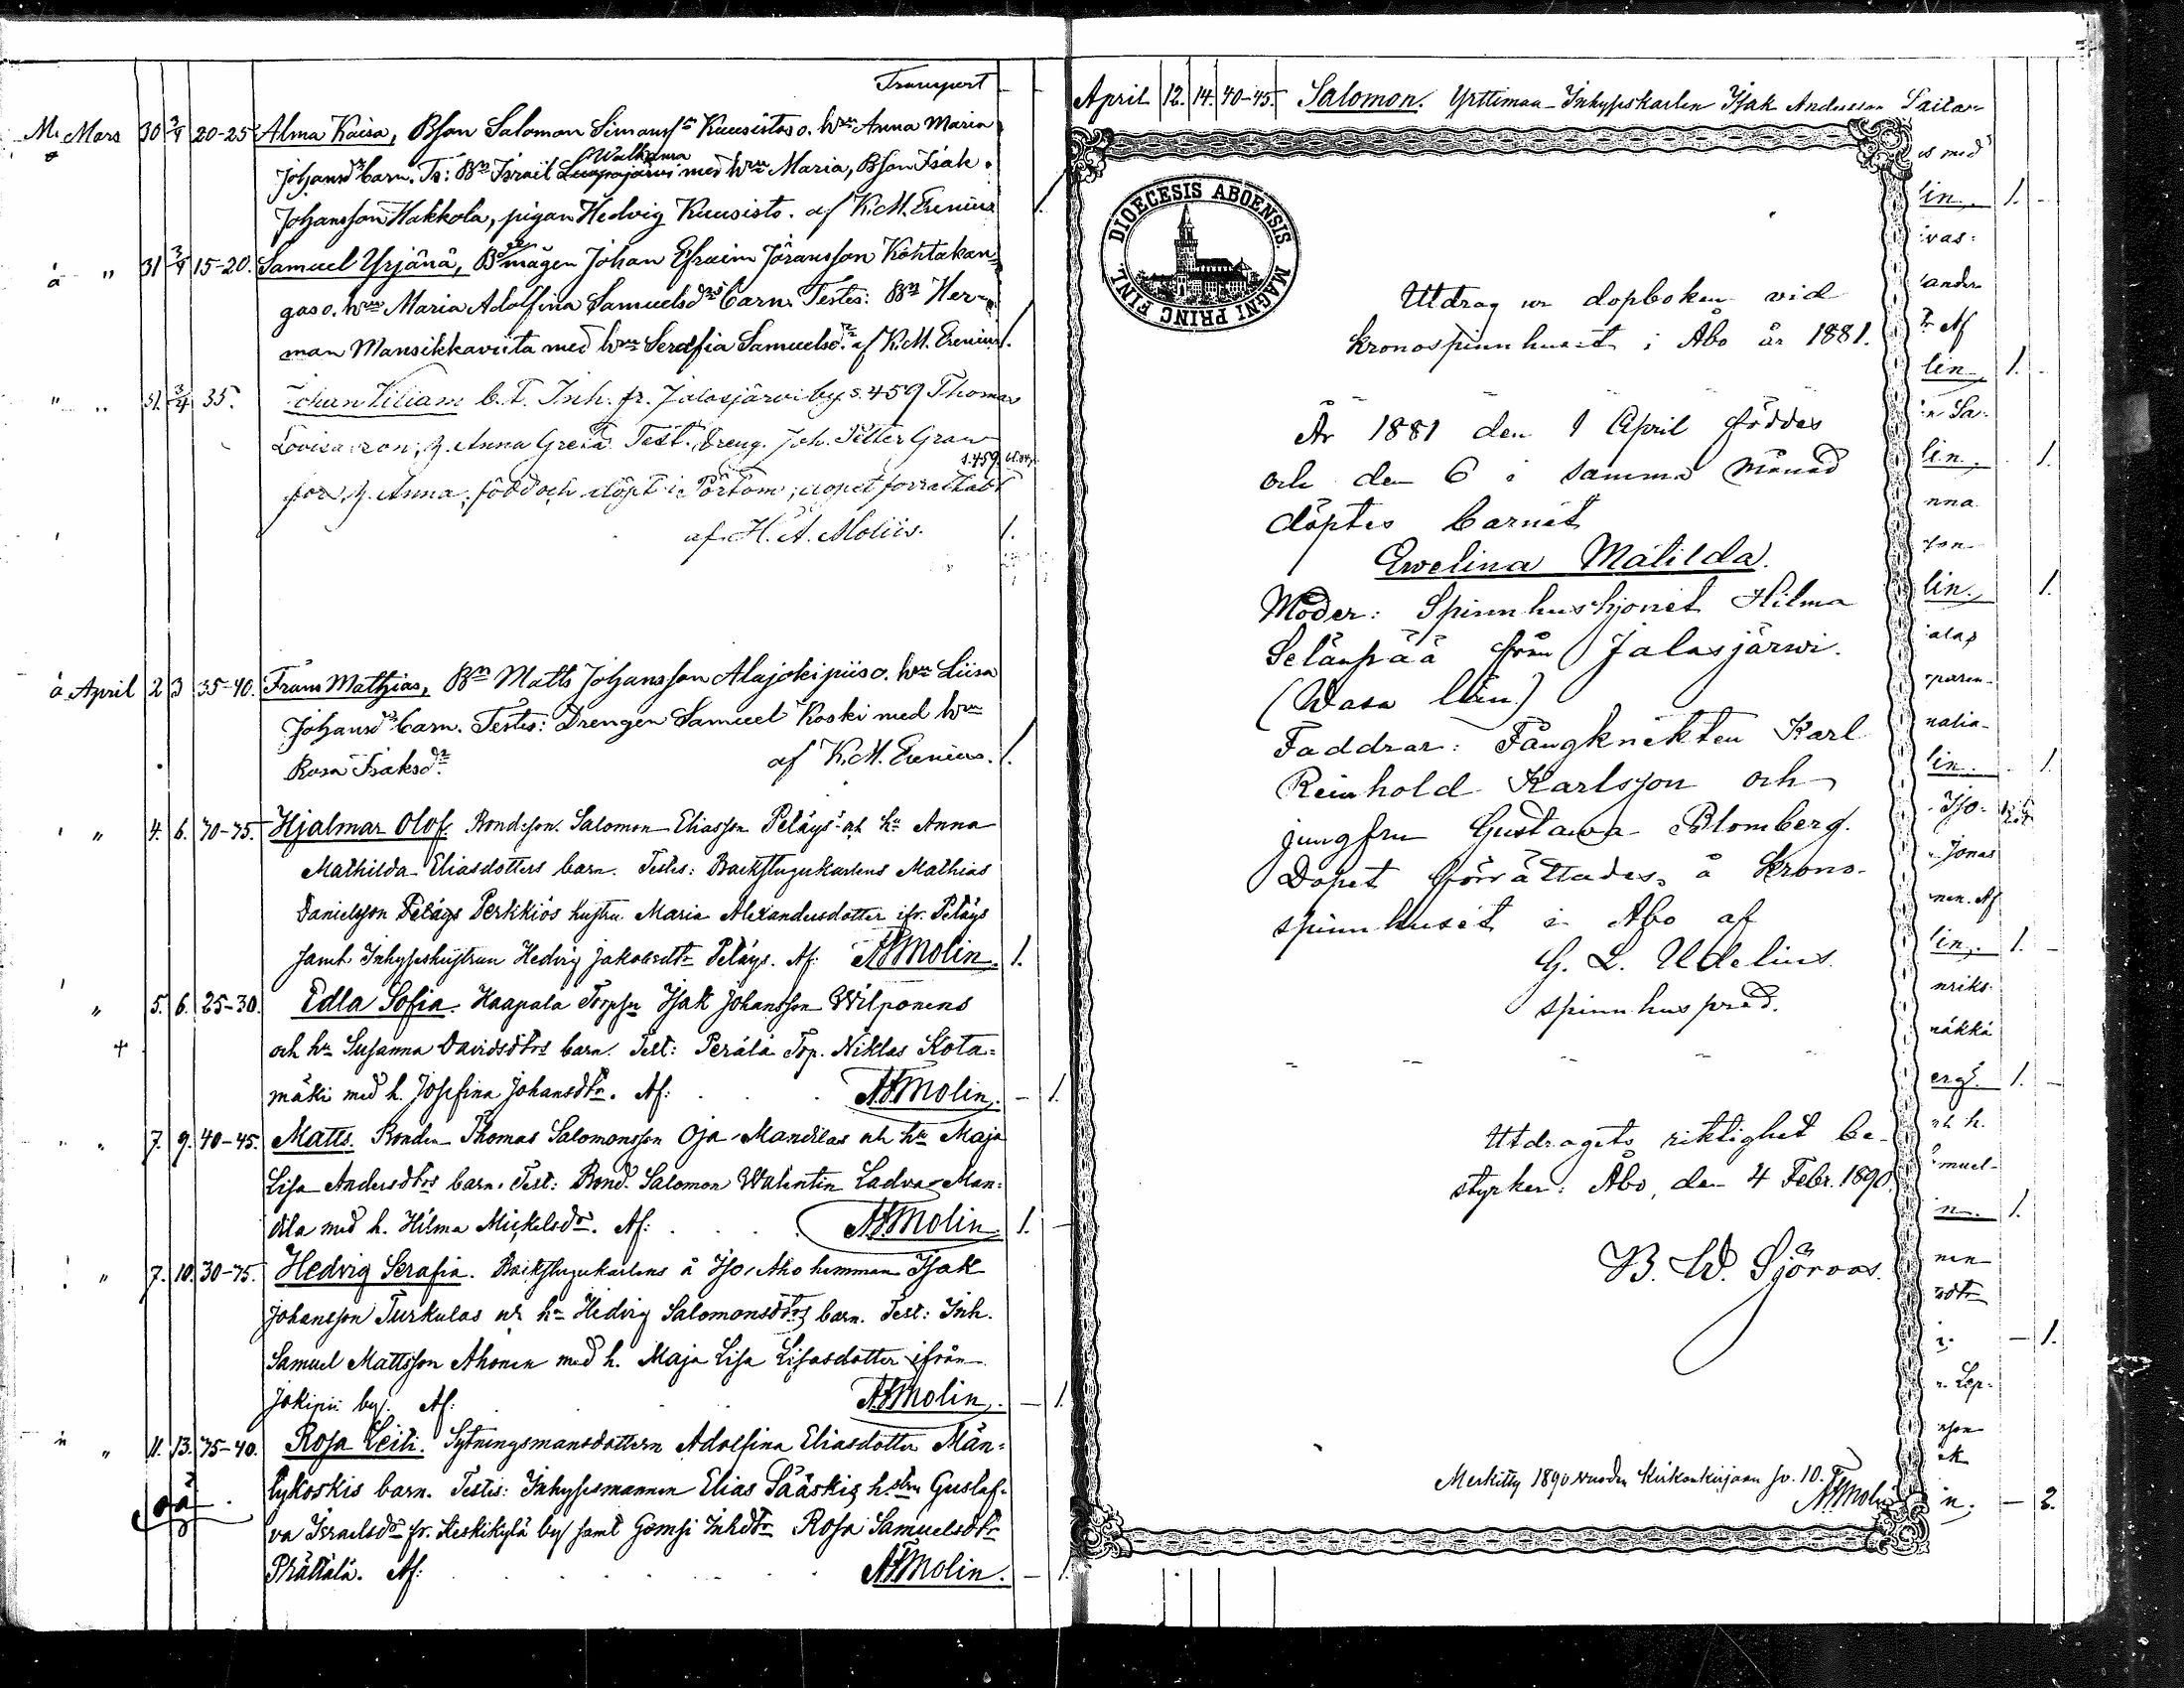 Transport
Mars 30 2/4 20-25 Alma Kaisa, Bson Salomon Simonss Kuusistos o. hru Anna Maria
Johansdrs barn. Ts: Bn Israël Luopajärvi Walkama med hru Maria, Bson Isak
Johansson Hakkola, pigan Hedvig Kuusisto. af K.M. Erenius 1.
" 31 3/4 15-20. Samuel Yrjänä, Bmågen Johan Efraim Jöransson Kohtakan-
gas o. hrus Maria Adolfina Samuelsdrs barn. Testes: Bn Her-
man Mansikkaviita med hru Serafia Samuelsdr. af K.M. Erenius 1.
" 31. 3/4 35. Johan Viliam b. t. Inh. fr. Jalasjärvi by s. 459 Thomas
Lovisason, h. Anna Greta. Test. dreng. Joh. Petter Gran
s. 459
för h. Anna; född och döpt i Pörtom; dopet förrättadt
af H. A. Moliis. 1.
April 2 3 35-40. Frans Mathias, Bn Matts Johansson Alajokipiis o. hru Liisa
Johansdrs barn. Testes: Drengen Samuel Koski med hru
Rosa Isaksdr. af K.M. Erenius. 1.
" 4. 6. 70-75. Hjalmar Olof. Bondeson. Salomon Eliasson Peläys och hu Anna
Mathilda Eliasdotters barn. Testes: Backstugukarlens Mathias
Danielsson Peläys Perkkiös hustru Maria Alexandersdotter ifr. Peläys
samt Inhyseshustrun Hedvig Jakobsdtr Peläys. Af: A Molin. 1.
" 5. 6. 25-30. Edla Sofia. Haapala Torpsn Isak Johansson Wilponens
+ och hu Susanna Davidsdtrs barn. Test: Perälä Torp. Niklas Kota-
mäki med h. Josefina Johansdtr. Af: A Molin. - 1.
" 7. 9. 40-45. Matts. Bonden Thomas Salomonsson Oja-Mandilas och hu Maja
Lisa Andersdtrs barn. Test: Bond. Salomon Walentin Ladva-Man-
dila med h. Hilma Mickelsdtr. Af: A Molin. 1. -
" 7. 10. 30-75. Hedvig Serafia. Backstugukarlens å Iso-Aho hemman Isak
Johansson Turkulas och hu Hedvig Salomonsdtrs barn. Test: Inh.
Samuel Mattsson Ahonen med h. Maja Lisa Lisasdotter ifrån
Jokipii by. Af: A Molin. - 1.
" 11. 13. 75-40. Rosa Leiti. Sytningsmansdottern Adolfina Eliasdotter Män-
tykoskis barn. Testis: Inhysesmannen Elias Sääskis hustru Gustaf-
va Israelsdtr fr. Keskikylä by samt Gamsi Inhdtr Rosa Samuelsdtr
Prättälä. Af: A Molin. - 1.
April 12. 14. 40-45. Salomon. Yrttimaa-Inhyseskarlen Isak Andersson Sailar-
DIOECESIS ABOENSIS. MAGNI PRINC FINL.
Utdrag ur dopboken vid
kronospinnhuset i Åbo år 1881.
År 1881 den 1 April föddes
och den 6 i samma månad
döptes barnet
Ewelina Matilda.
Moder: Spinnhushjonet Hilma
Selänpää från Jalasjärwi.
(Wasa län)
Faddrar: Fångknekten Karl
Reinhold Karlsson och
jungfru Gustawa Blomberg.
Dopet förrättades å krono-
spinnhuset i Åbo af
G. L. Udelius.
spinnhuspred.
Utdragets riktighet be-
styrker: Åbo, den 4 Febr. 1890
B. W. Sjöroos.
Merkitty 1890 vuoden Kirkonkirjaan sv. 10.
A Molin
es med
lin. 1.
vas:
ander
Af
lin. 1.
n Sa-
lin. 1.
nna
son
lin. 1.
nalia-
lin. 1.
Iso-
Jonas
nen. Af
lin. 1. -
nriks-
näkkä
ergs. 1. -
och h.
muel-
n. 1.
nen
sdtr
- 1.
Lep-
n. - 2.